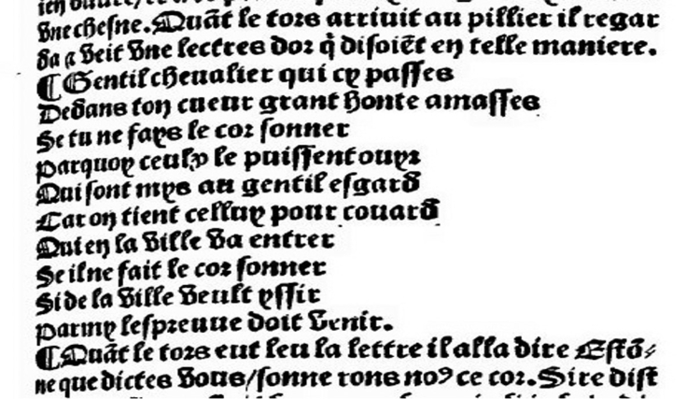 vne chesne. Quãt le tors arriuit au pillier il regar
da ⁊ veit vne lectres dor q̃ disoiẽt en telle maniere.
¶ Gentil cheualier qui cy passes
Dedans ton cueur grant honte amasses
Se tu ne fays le cor sonner
Parquoy ceulx le puissent ouyr
Qui sont mys au gentil esgard
Car on tient celluy pour couard
Qui en la ville va entrer
Se il ne fait le cor sonner
Si de la ville veult yssir
Parmy lespreuue doit venir.
¶ Quãt le tors eut leu la lettre il alla dire Estõ⸗
ne que dictes vous/sonne rons noꝰ ce cor. Sire dist